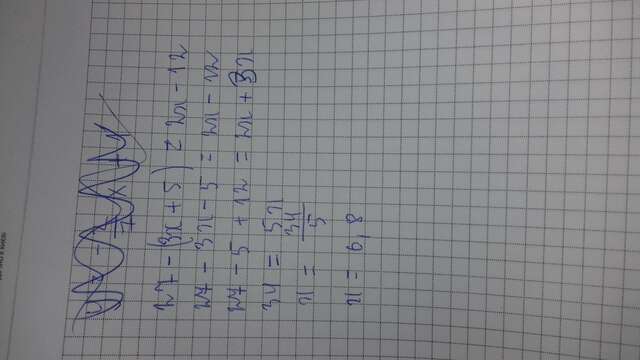 27 - (3x + 5) = 2x - 12
27 - 3x - 5 = 2x - 12
27 - 5 + 12 = 2x + 3x
34 = 5x
x = 34/5
x = 6,8